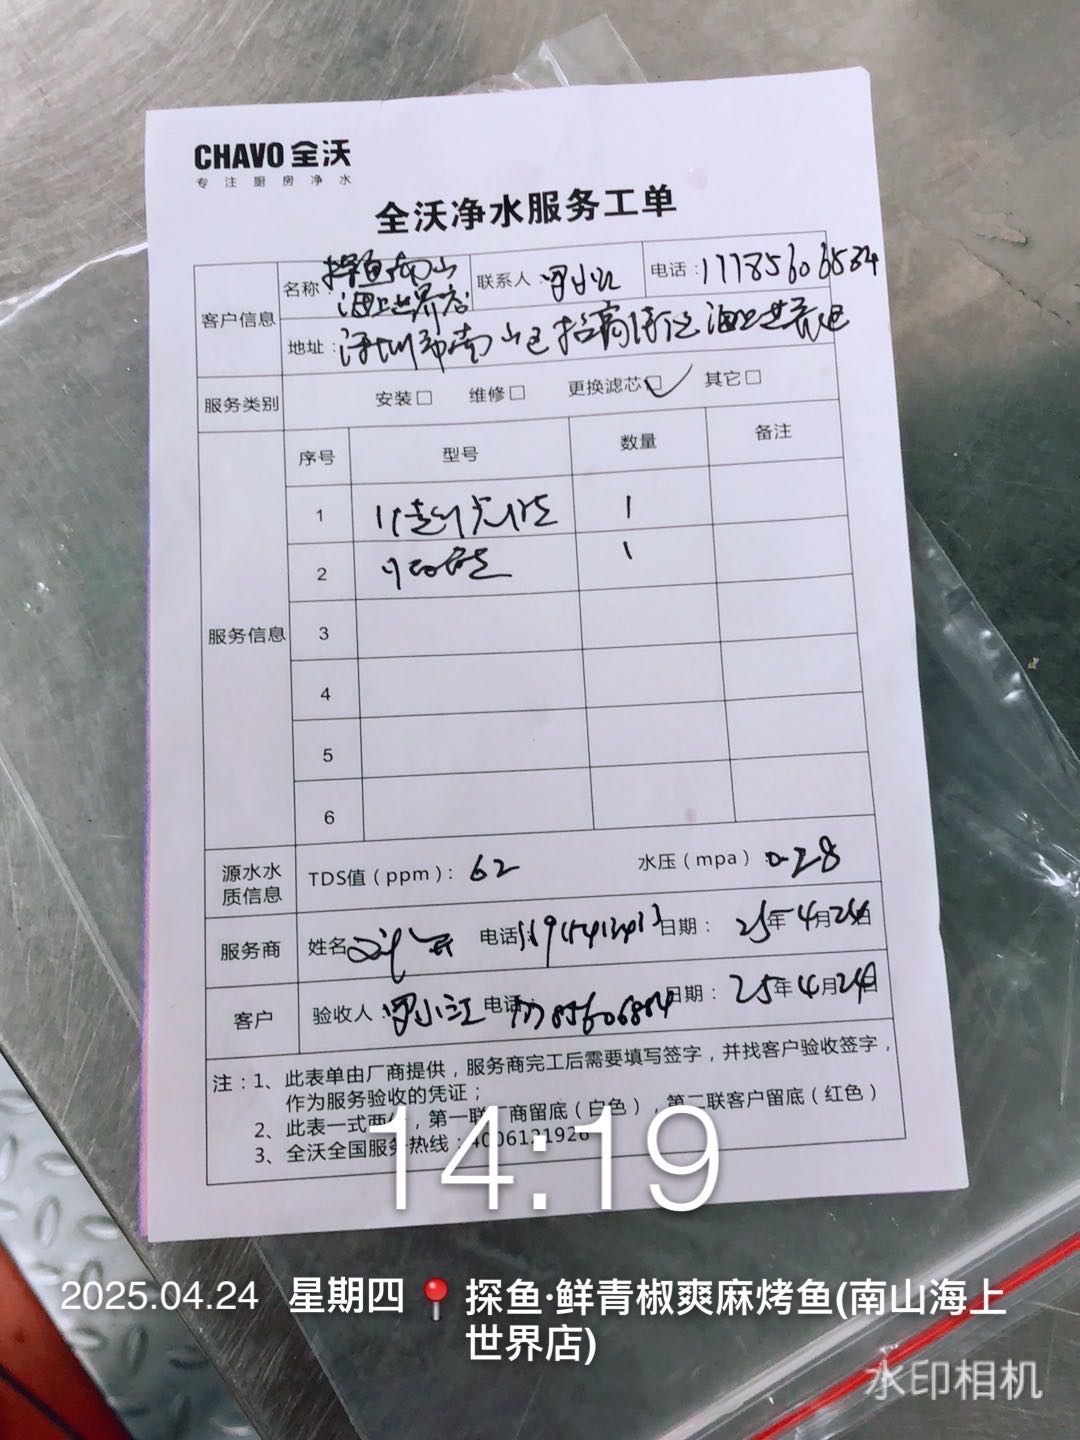 CHAVO 全沃
专注厨房净水
全沃净水服务工单
客户信息 名称：探鱼南山海上世界店 联系人：罗小江 电话：17785606584
地址：深圳市南山区招商街道海上世界
服务类别 安装□ 维修□ 更换滤芯☑ 其它□
服务信息 序号 型号 数量 备注
1 1
2 1
3
4
5
6
源水水质信息 TDS值（ppm）：62 水压（mpa）0.28
服务商 姓名 电话 日期：25年4月24日
客户 验收人：罗小江 电话： 日期：25年4月24日
注：1、此表单由厂商提供，服务商完工后需要填写签字，并找客户验收签字，
作为服务验收的凭证；
2、此表一式两份，第一联厂商留底（白色），第二联客户留底（红色）
3、全沃全国服务热线：4006121926
14:19
2025.04.24 星期四 探鱼·鲜青椒爽麻烤鱼(南山海上
世界店)
水印相机